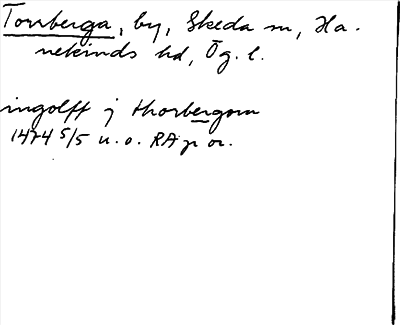 Torrberga, by, Skeda sn, Ha-
nekinds hd, Ög. l.
ingolff j thorbergom
1474 5/5 u. o. RAp or.